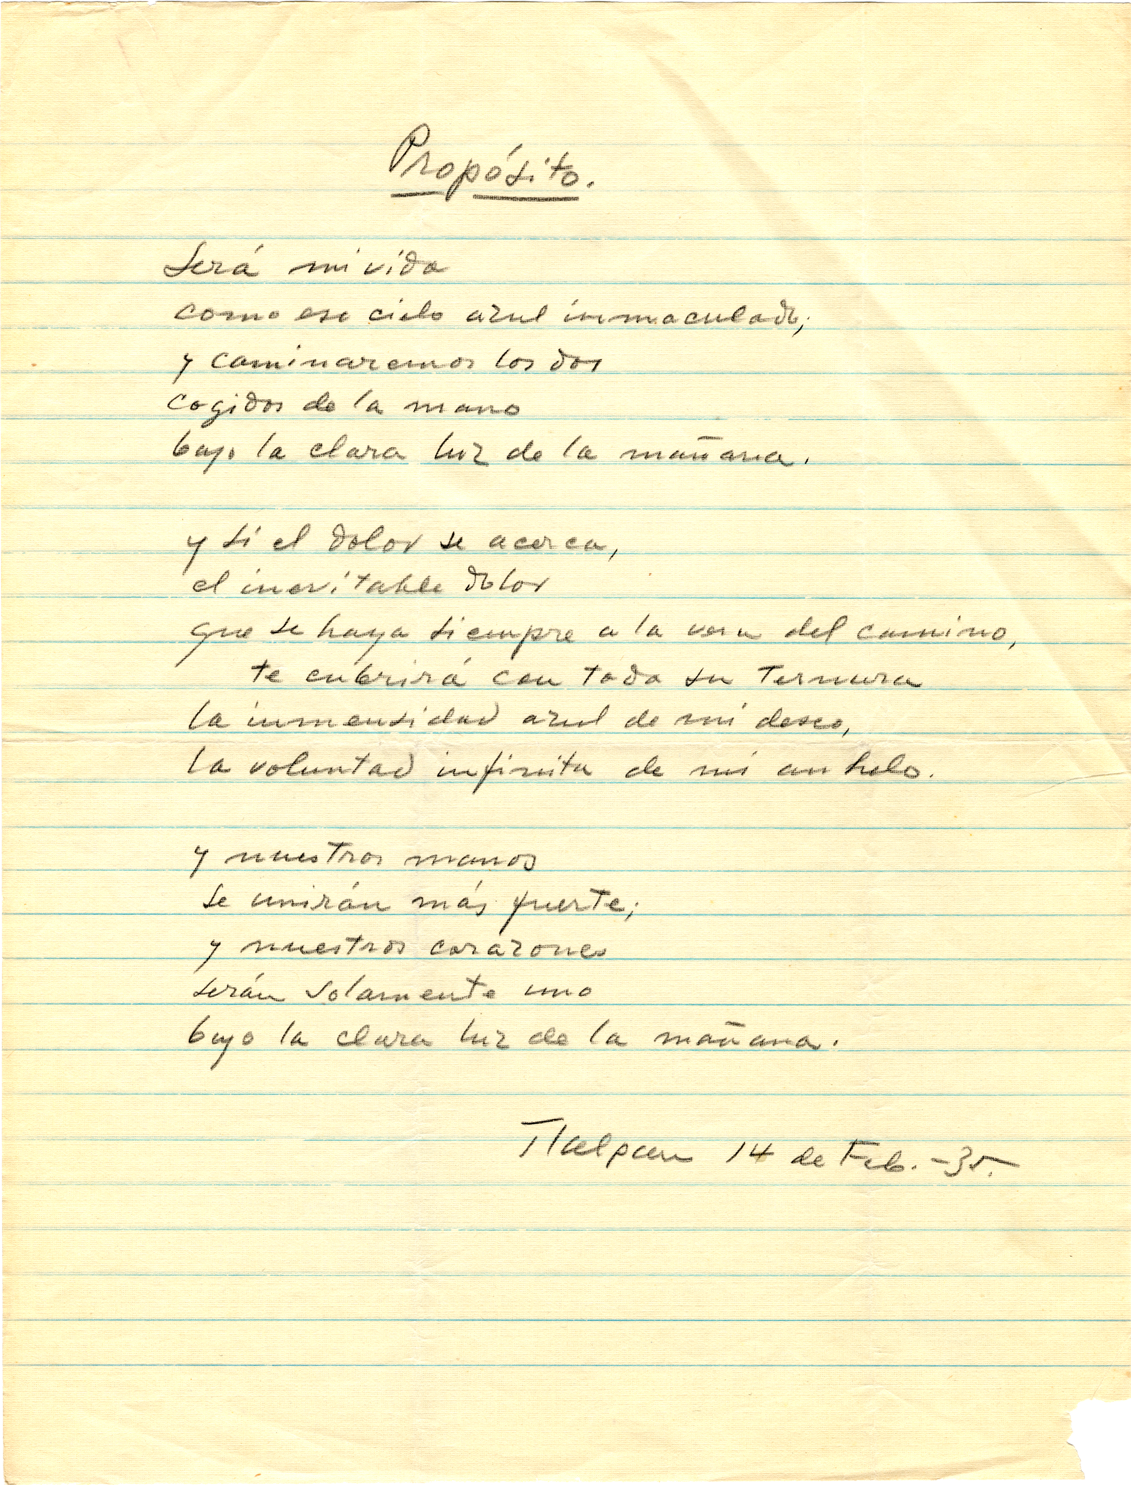 Propósito.
Será mi vida
como ese cielo azul inmaculado;
y caminaremos los dos
cogidos de la mano
bajo la clara luz de la mañana.
y si el dolor se acerca,
el inevitable dolor
que se haya siempre a la vera del camino,
te cubrirá con toda su ternura
la inmensidad azul de mi deseo,
la voluntad infinita de mi anhelo.
y nuestros manos
se unirán más fuerte;
y nuestros corazones
serán solamente uno
bajo la clara luz de la mañana.
Tlalpan 14 de Feb. -35.